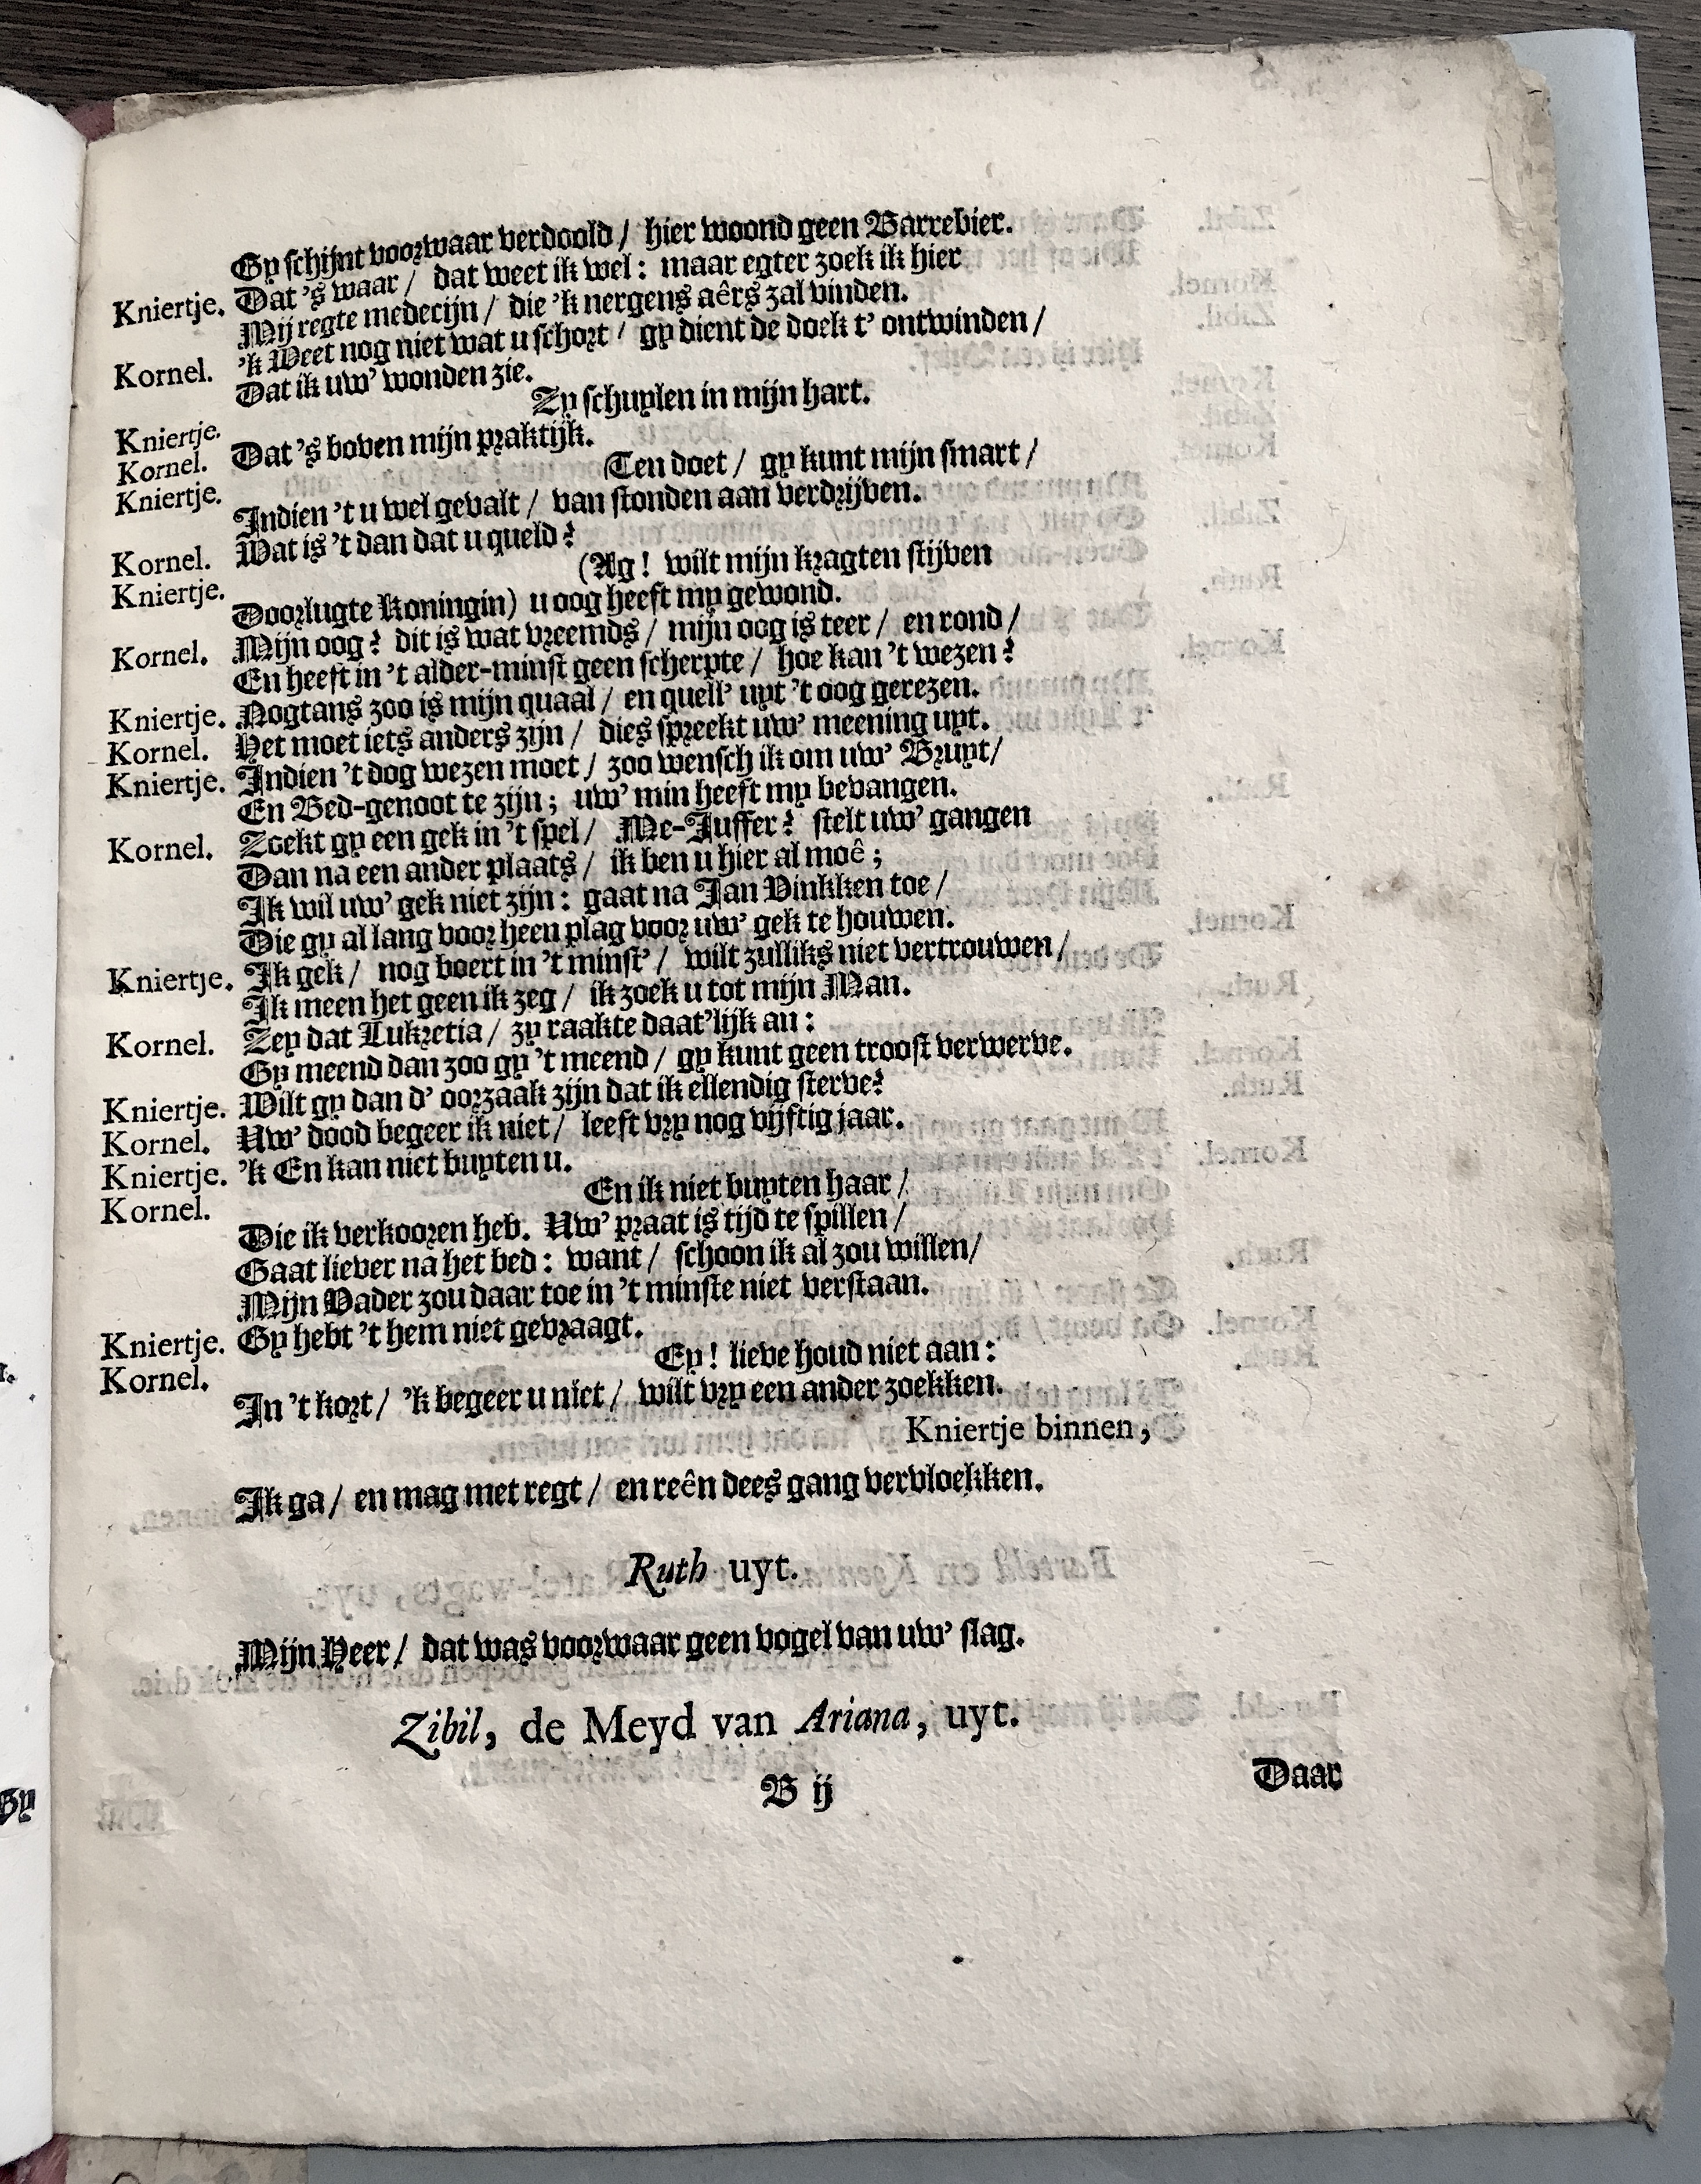 Gy schijnt voorwaar verdoold / hier woond geen Barrebier.
Kniertje. Dat 's waar / dat weet ik wel: maar egter zoek ik hier
Mij regte medecijn / die 'k nergens aêrs zal vinden.
Kornel. 'k Weet nog niet wat u schort / gy dient de doek t' ontwinden /
Dat ik uw' wonden zie.
Kniertje. Zy schuylen in mijn hart.
Kornel. Dat 's boven mijn praktijk.
Kniertje. (Ten doet / gy kunt mijn smart /
Indien 't u wel gevalt / van stonden aan verdrijven.
Kornel. Wat is 't dan dat u queld?
Kniertje. (Ag! wilt mijn kragten stijven
Doorlugte Koningin) u oog heeft my gewond.
Kornel. Mijn oog? dit is wat vreemds / mijn oog is teer / en rond /
En heeft in 't alder-minst geen scherpte / hoe kan 't wezen?
Kniertje. Nogtans zoo is mijn quaal / en quell' uyt 't oog gerezen.
Kornel. Het moet iets anders zijn / dies spreekt uw' meening uyt.
Kniertje. Indien 't dog wezen moet / zoo wensch ik om uw' Bruyt /
En Bed-genoot te zijn; uw' min heeft my bevangen.
Kornel. Zoekt gy een gek in 't spel / Me-Juffer? stelt uw' gangen
Dan na een ander plaats / ik ben u hier al moê;
Ik wil uw' gek niet zijn: gaat na Jan Vinkken toe /
Die gy al lang voor heen plag voor uw' gek te houwen.
Kniertje. Ik gek / nog boert in 't minst' / wilt zulliks niet vertrouwen /
Ik meen het geen ik zeg / ik zoek u tot mijn Man.
Kornel. Zey dat Lukretia / zy raakte daat'lijk an:
Gy meend dan zoo gy 't meend / gy kunt geen troost verwerve.
Kniertje. Wilt gy dan d' oorzaak zijn dat ik ellendig sterve?
Kornel. Uw' dood begeer ik niet / leeft vry nog vijftig jaar.
Kniertje. 'k En kan niet buyten u.
Kornel. En ik niet buyten haar /
Die ik verkooren heb. Uw' praat is tijd te spillen /
Gaat liever na het bed: want / schoon ik al zou willen /
Mijn Vader zou daar toe in 't minste niet verstaan.
Kniertje. Gy hebt 't hem niet gevraagt.
Kornel. Ey! lieve houd niet aan:
In 't kort / 'k begeer u niet / wilt vry een ander zoekken.
Kniertje binnen,
Ik ga / en mag met regt / en reên dees gang vervloekken.
Ruth uyt.
Mijn Heer / dat was voorwaar geen vogel van uw' slag.
Zibil, de Meyd van Ariana, uyt.
B ij
Daar